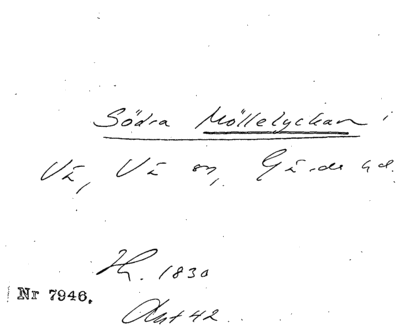 Södra Möllelyckan i
Vä, Vä sn, Gärds hd.
Hr. 1830
Nr 7946.
Akt 42